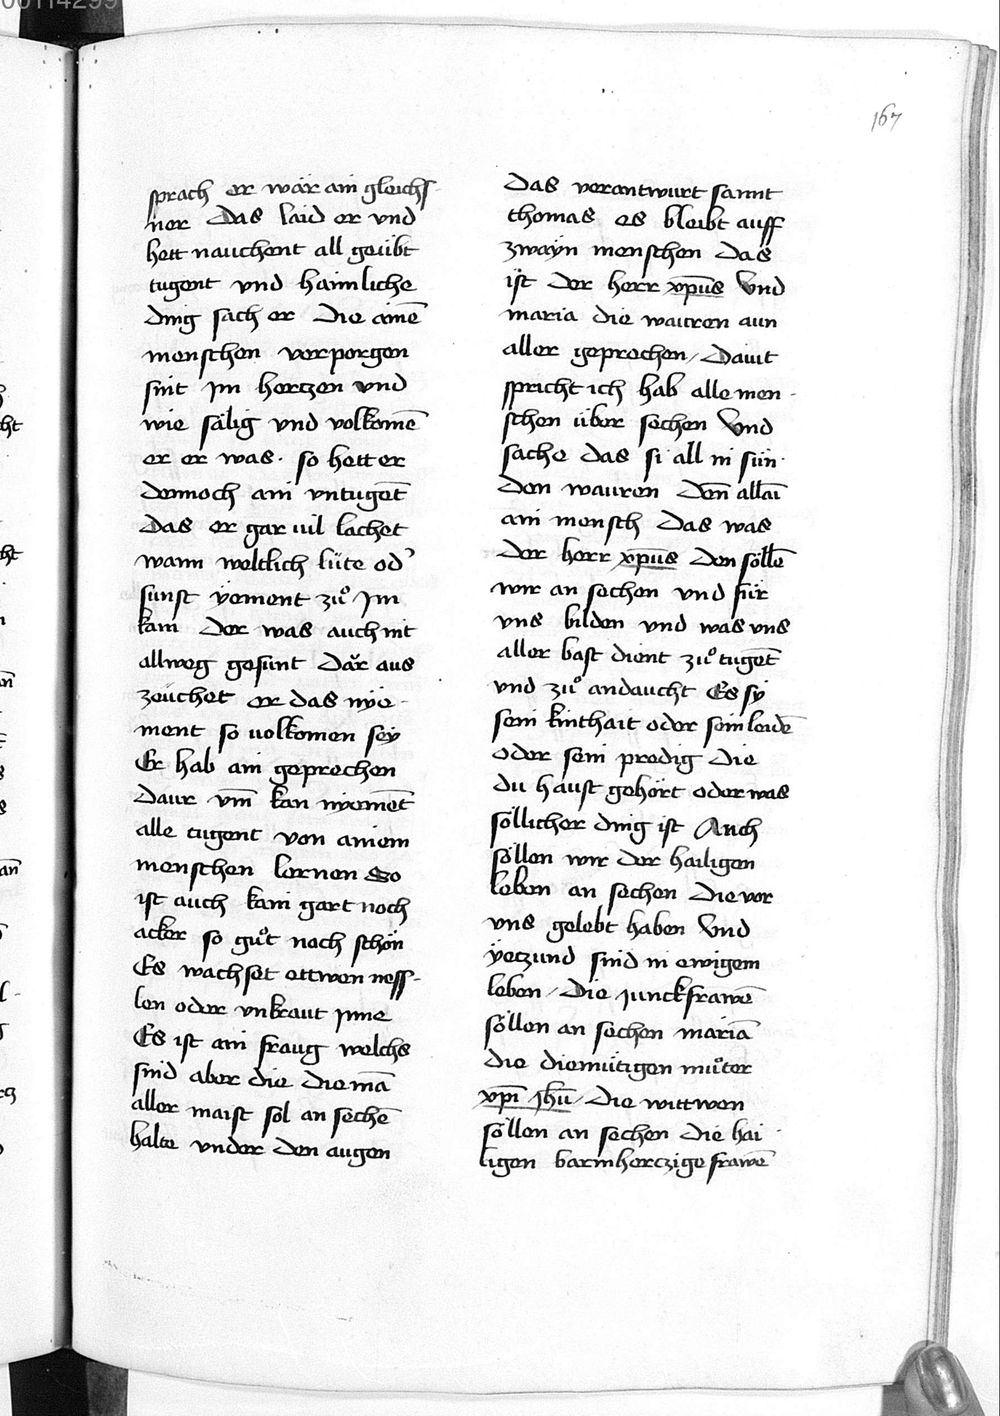 167
sprach er wär ain gleichs-
ner Das laid er vnd
hett nauchent all geübt
tugent vnd haimliche
ding sach er Die ainē
menschen verporgen
sint jm hertzen vnd
wie sälig vnd volkomē
er er was. so hett er
dennoch ain vntugēt
Das er gar uil lachet
wann weltlich lüte od'
sunst yement zuͦ jm
kam Der was auch nit
allweg gesunt Dăr aus
zeüchet er das nye-
ment so uolkomen sey
Er hab ain geprechen
Daur vm̄ kan nyemēt
alle tugent von ainem
menschen lernen So
ist auch kain gart noch
acker so guͦt noch schön
Es wachset ettwen ness-
len oder vnkraut jnne
Es ist ain fraug welchs
sind aber die Die mā
aller maist sol an sechē
halte vnder den augen
Das verantwurt sannt
thomas es bleibt auff
zwayn menschen das
ist der herr xp̄us Vnd
maria die wauren aun
aller geprechen / Dauit
spricht ich hab alle men-
schen über sechen Vnd
sache das si all in sün-
den wauren Den̄ allaī
ain mensch Das was
der herr xp̄us Den söllē
wir an sechen vnd für
vns bilden vnd was vns
aller bast dient zuͦ tugēt
vnd zuͦ andaucht Es sy
sein kinthait oder sein leidē
oder sein predig die
du haust gehört oder was
söllicher ding ist Auch
söllen wir der hailigen
leben an sechen Die vor
vns gelebt haben Vnd
yeczund sind in ewigem
leben / Die junckfrawē
söllen an sechen mariā
die diemütigen muͦter
xp̄i jhū / Die wittwen
söllen an sechen die hai-
ligen barmherczige frawē